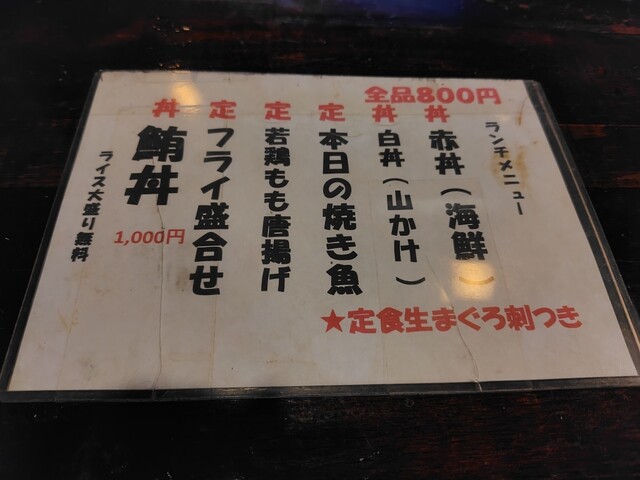 ランチメニュー
全品800円
丼 赤丼(海鮮)
丼 白丼(山かけ)
定 本日の焼き魚
定 若鶏もも唐揚げ
定 フライ盛合せ
丼 鮪丼
1,000円
ライス大盛り無料
★定食生まぐろ刺つき